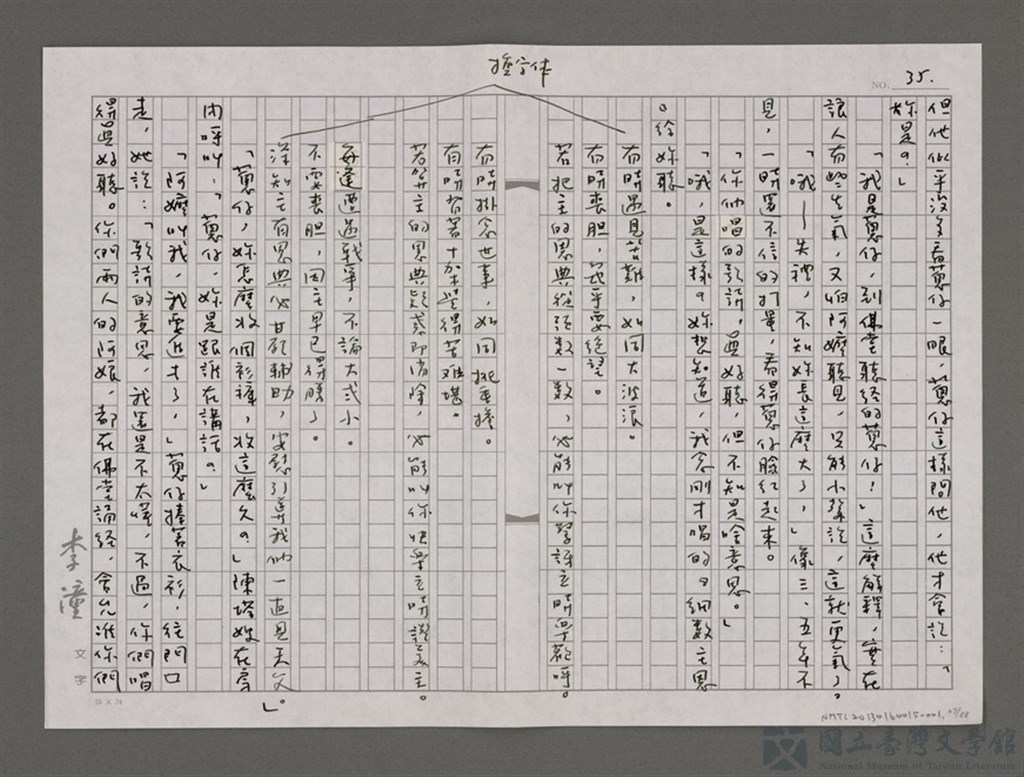 楷字体
NO. 35.
但他似乎沒多看蔥仔一眼，蔥仔這樣問他，他才含說：「
妳是？」
「我是蔥仔，到佛堂聽經的蔥仔！」這麼解釋，實在
讓人有些生氣，又怕阿嬤聽見，只能小聲說，這就更氣了。
「哦——失禮，不知妳長這麼大了，」像三、五年不
見，一時還不信的打量，看得蔥仔臉紅起來。
「你們唱的歌詩，真好聽，但不知是啥意思。」
「哦，是這樣。妳想知道，我念剛才唱的『細數主恩
』給妳聽。
有時遇見苦難，如同大波浪。
有時喪胆，幾乎要絕望。
若把主的恩典從頭數一數，必能叫你驚訝立時樂歡呼。
有時掛念世事，如同挑重擔。
有時背著十架覺得苦難堪。
若數主的恩典疑惑即消除，必能叫你快樂立時讚美主。
每逢遭遇戰爭，不論大或小。
不要喪胆，因主早已得勝了。
深知主有恩典必甘願輔助，安慰引導我們一直見天父。」
「蔥仔，妳怎麼收個衫褲，收這麼久？」陳塔嫂在房
內呼叫，「蔥仔，妳是跟誰在講話？」
「阿嬤叫我，我要進去了，」蔥仔捧著衣衫，往門口
走，她說：「歌詩的意思，我還是不太懂，不過，你們唱
得真好聽。你們兩人的阿娘，都在佛堂誦經，會允准你們
李潼
文字
25 × 24
NMTL20130160015-001,
國立臺灣文學館
National Museum of Taiwan Literature